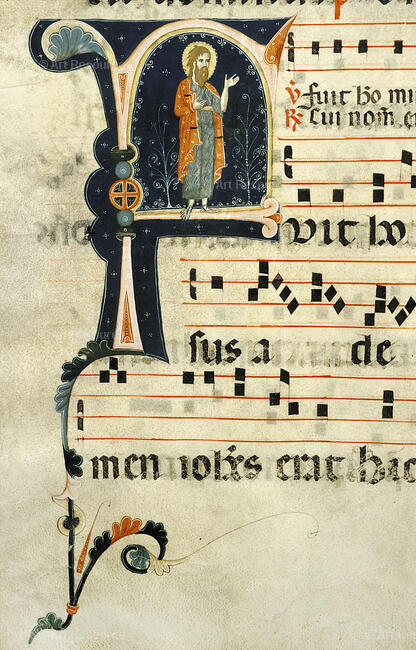 ℣ fuit ho mi
℟ Cui nom̄ e
Fuit ho
sus a de
men ioh̄s erat hic